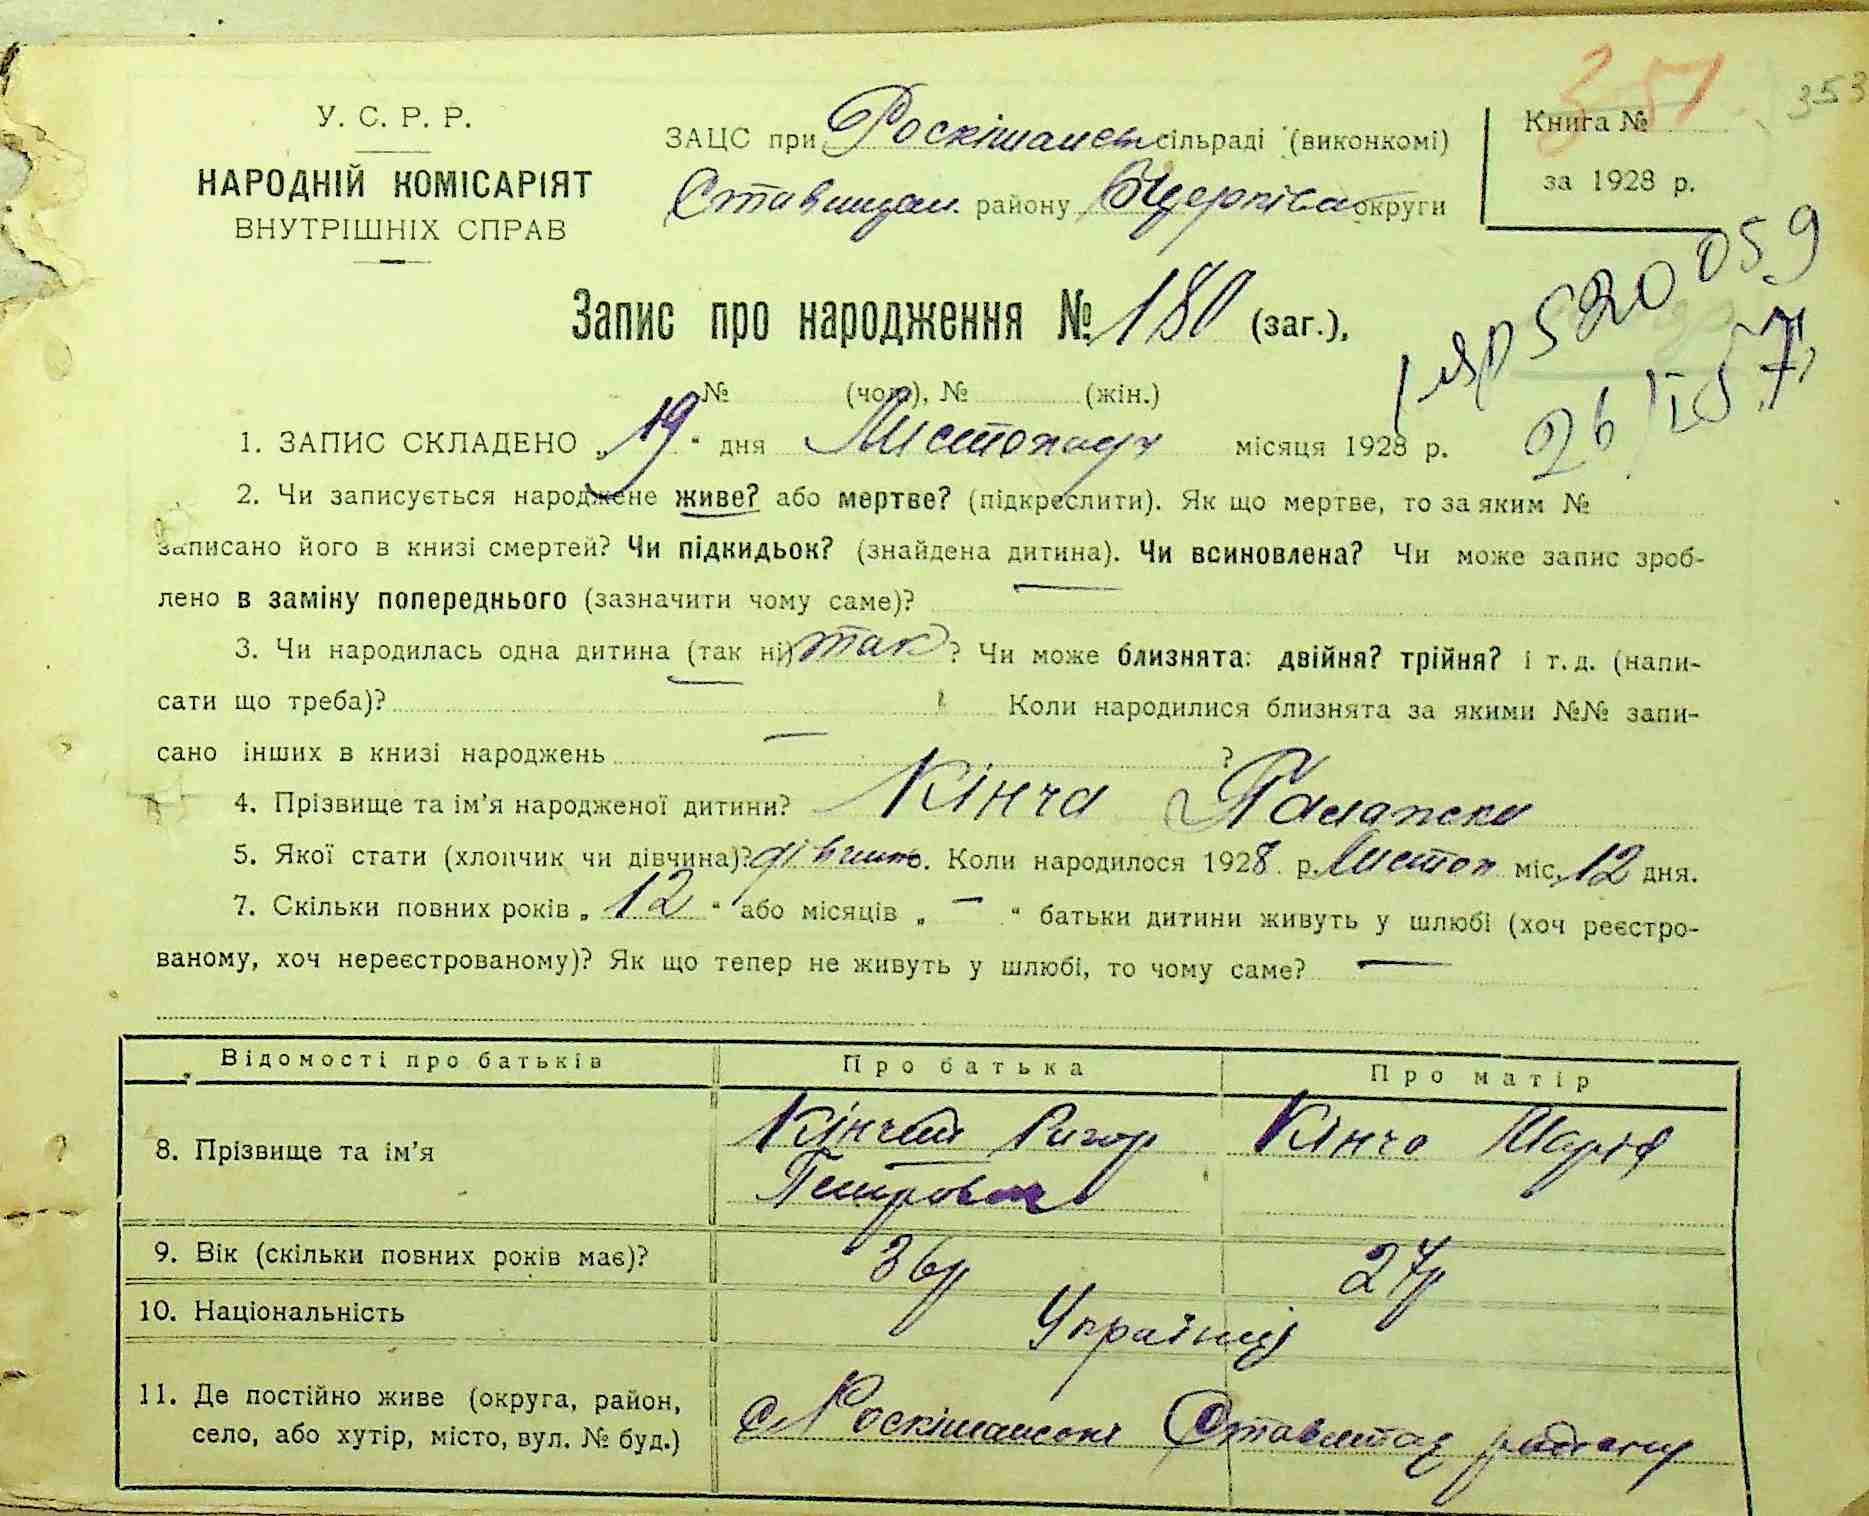 351 353
У. С. Р. Р.
НАРОДНІЙ КОМІСАРІЯТ
ВНУТРІШНІХ СПРАВ
ЗАЦС при Роскішанст сільраді (виконкомі)
Ставищан. району Б-Церківс округи
Книга №
за 1928 р.
Запис про народження № 180 (заг.),
520059
26/I 57
№ (чол), № (жін.)
1. ЗАПИС СКЛАДЕНО „19“ дня Листопада місяця 1928 р.
2. Чи записується народжене живе? або мертве? (підкреслити). Як що мертве, то за яким №
записано його в книзі смертей? Чи підкидьок? (знайдена дитина). Чи всиновлена? Чи може запис зроб-
лено в заміну попереднього (зазначити чому саме)?
3. Чи народилась одна дитина (так ні) так? Чи може близнята: двійня? трійня? і т. д. (напи-
сати що треба)? Коли народилися близнята за якими №№ запи-
сано інших в книзі народжень ?
4. Прізвище та ім’я народженої дитини? Кінча Палажка
5. Якої стати (хлопчик чи дівчина)? дівчино. Коли народилося 1928 р. Листоп міс. 12 дня.
7. Скільки повних років „12“ або місяців „—“ батьки дитини живуть у шлюбі (хоч реєстро-
ваному, хоч нереєстрованому)? Як що тепер не живуть у шлюбі, то чому саме? —
Відомості про батьків Про батька Про матір
8. Прізвище та ім’я Кінча Ригор Кінча Марія
Петрович
9. Вік (скільки повних років має)? 36р 27р
10. Національність Українці
11. Де постійно живе (округа, район,
село, або хутір, місто, вул. № буд.) с Роскішанськ Ставищан району